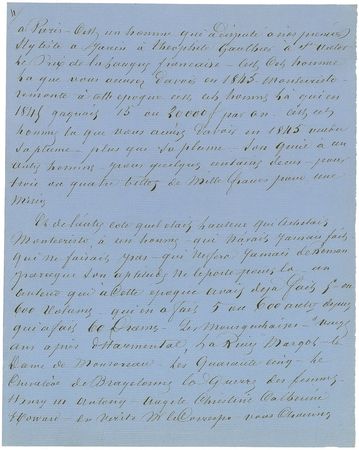 à Paris – C'est un homme qui dispute à nos premiers
Stylistes à Janin à Théophile Gauthier à
le Prix de la langue française – c'est cet homme
là que vous accusez d'avoir en 1845 Montecristo
remonte à cette époque c'est cet homme là qui en
1845 gagnait 15 ou 20000 f par an. c'est cet
homme là que vous accusez d'avoir en 1845 vendu
sa plume – plus que sa plume – son génie à un
autre homme – pour quelques centaines d'écus – pour
trois ou quatre billets de Mille francs pour une
misère
Et de l'autre coté quel était l'auteur qui achetait
Montecristo, à un homme – qui n'avait jamais fait –
qui ne faisait pas – qui ne fera jamais de Roman
parce que son aptitude ne le porte pas là – un
auteur qui à cette époque avait déjà fait 5 ou
600 volumes – qui en a fait 5 ou 600 autres depuis
qui a fait 60 Drames – Les Mousquetaires – Vingt
ans après d'Harmental, La Reine Margot – la
Dame de Monsoreau Les Quarante cinq – le
Chevalier de Bragelonne la Guerre des femmes –
Henry III Antony – Angèle Christine Catherine
Howard – en vérité M. le vous